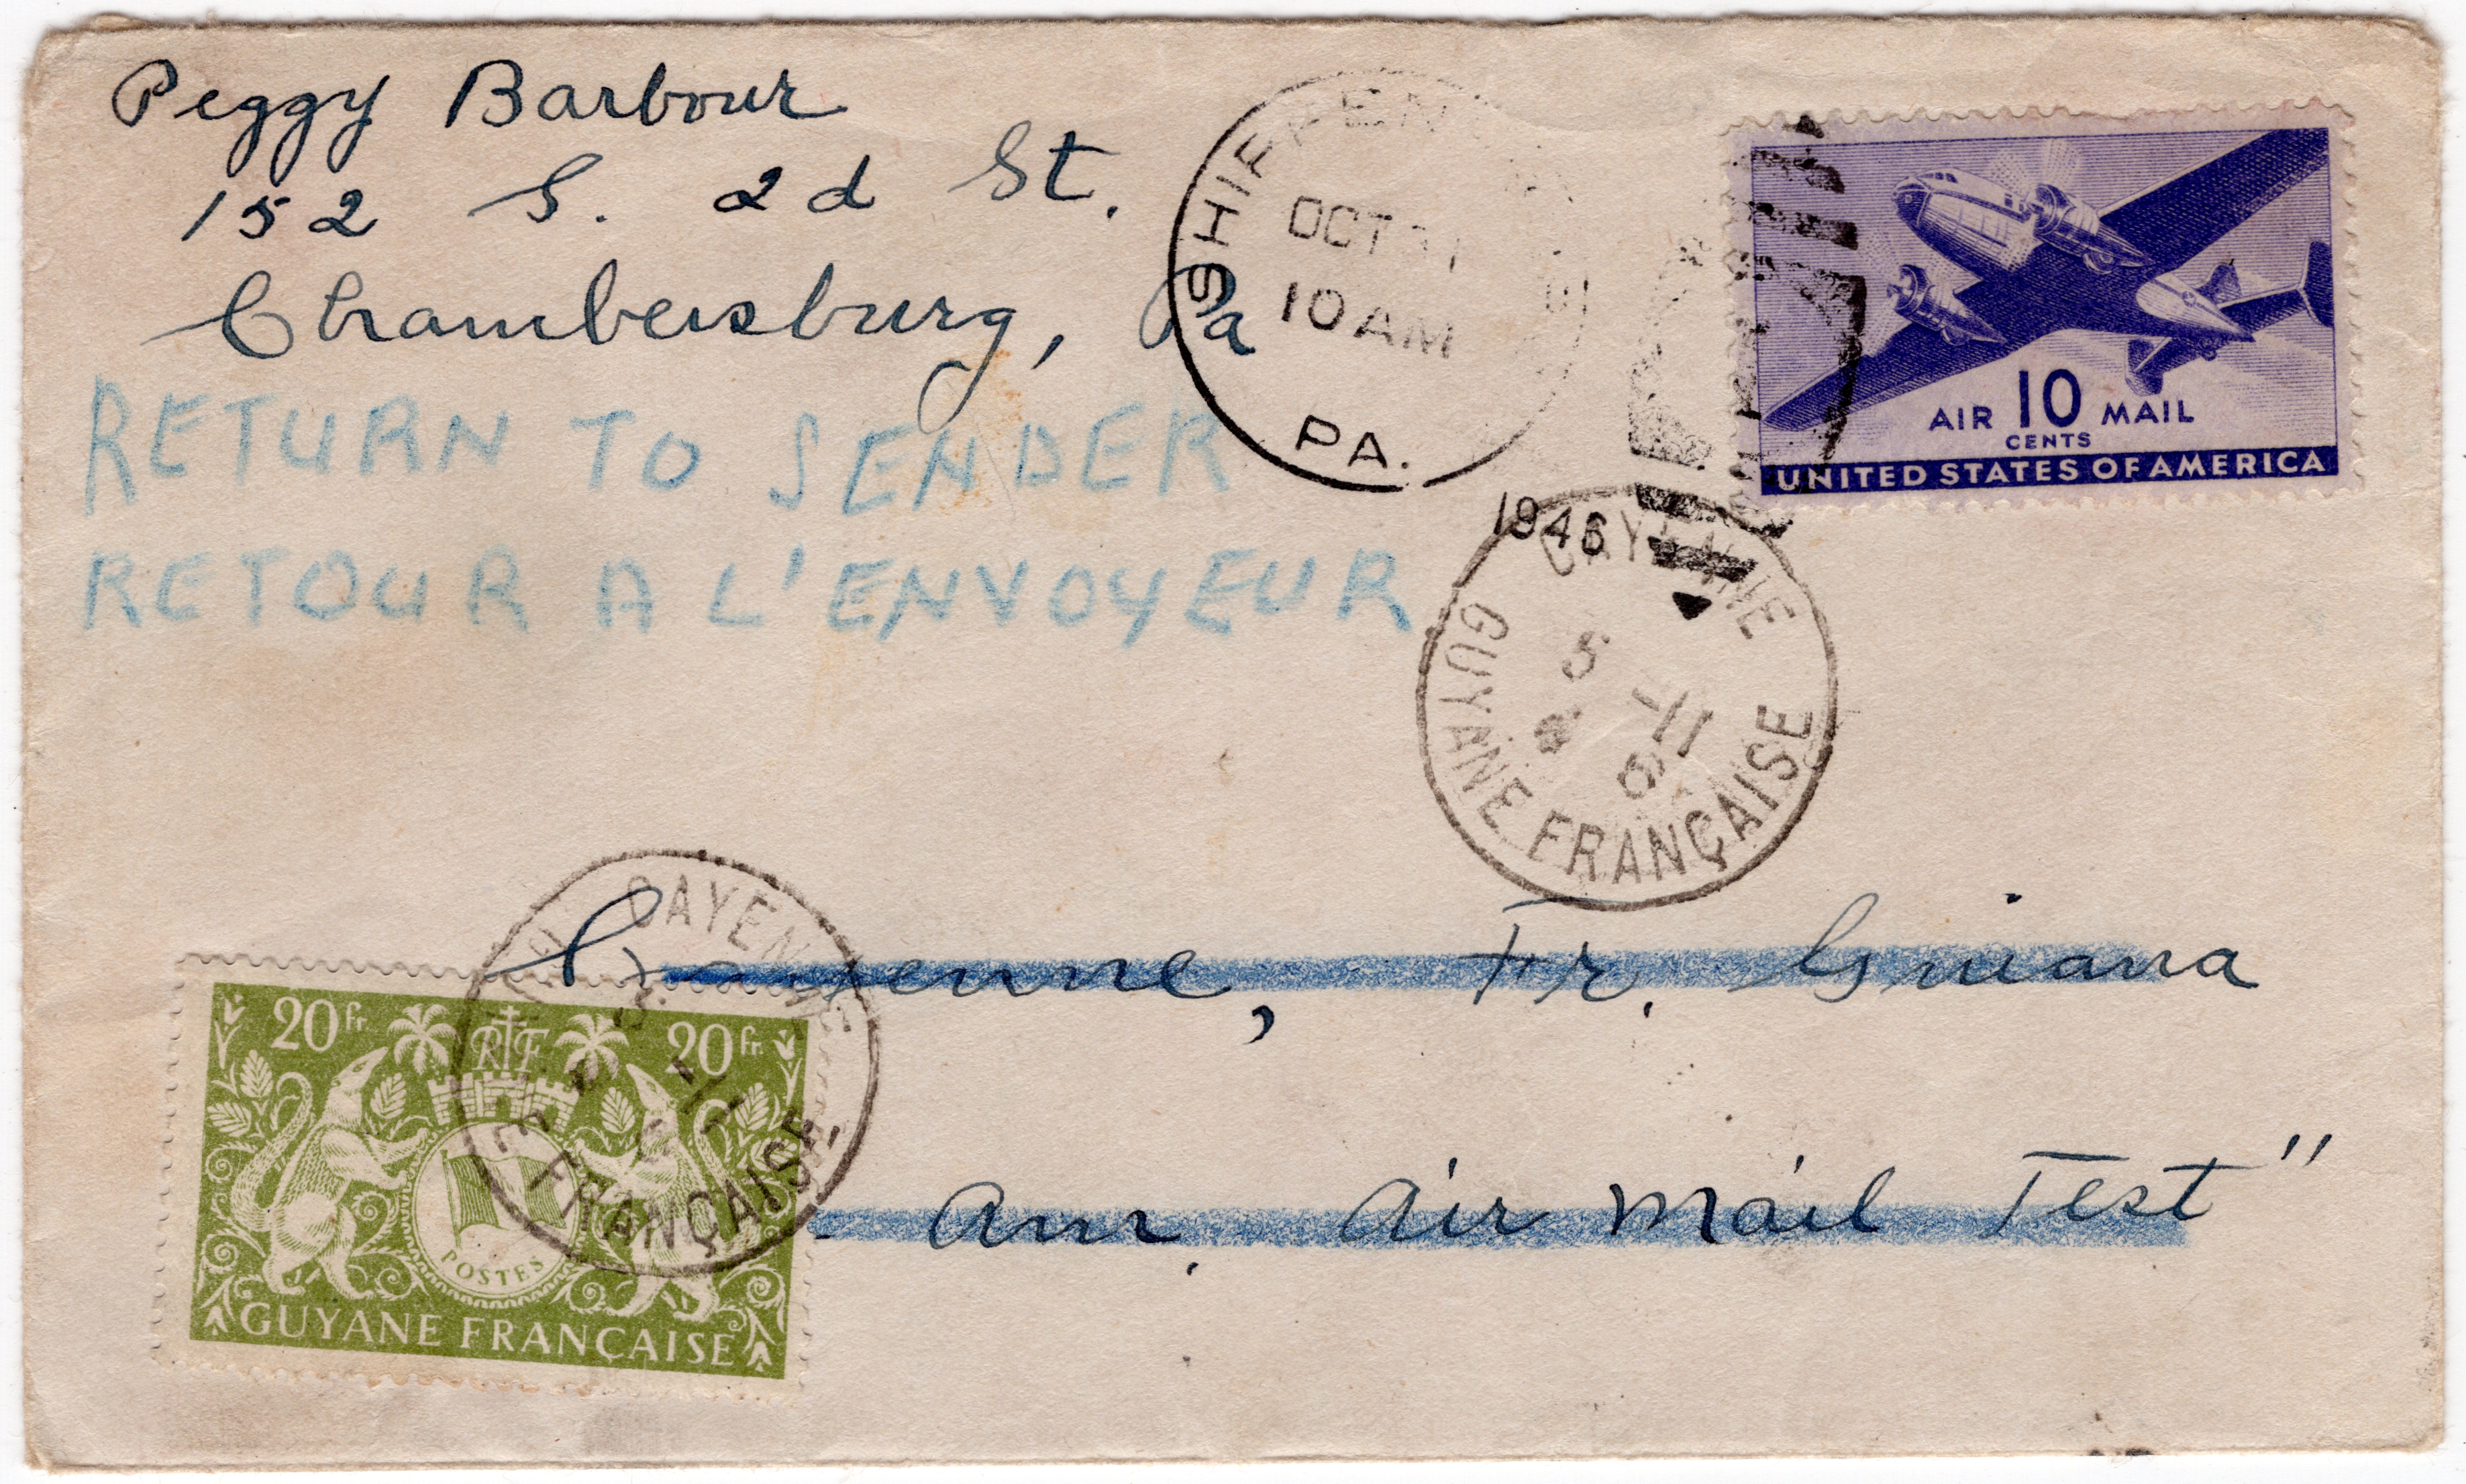 Peggy Barbour
152 S. 2d St.
Chambersburg, Pa
RETURN TO SENDER
RETOUR A L'ENVOYEUR
OCT
10 AM
PA.
1946
AIR 10 MAIL
CENTS
UNITED STATES OF AMERICA
CAYENNE
5 -11
GUYANE FRANÇAISE
Cayenne, Fr. Guiana
Air Mail Test"
CAYENNE
FRANÇAISE
20fr. RF 20fr.
POSTES
GUYANE FRANÇAISE